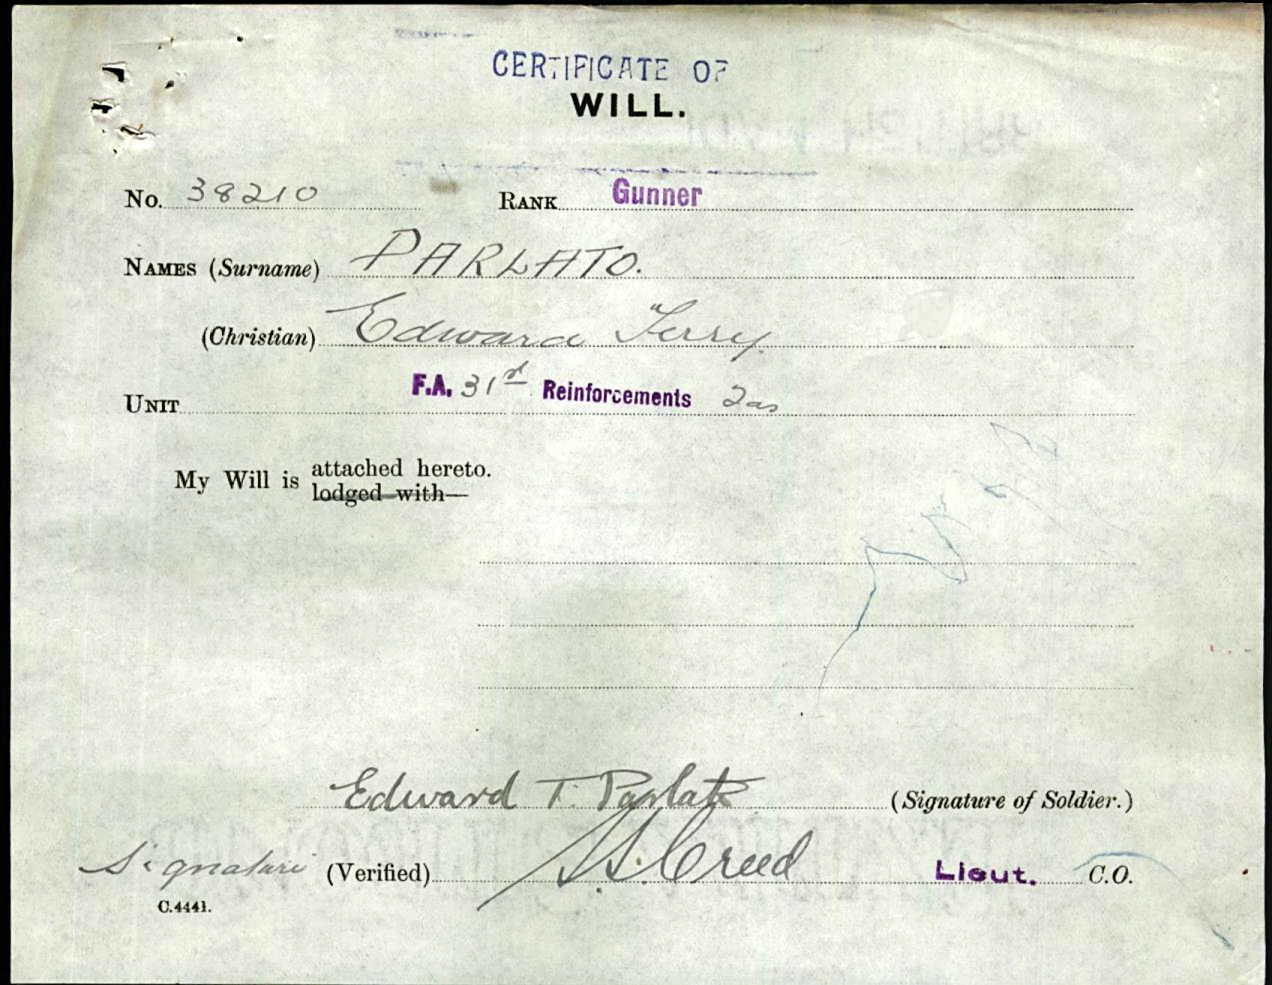 CERTIFICATE OF
WILL.
No. 38210 RANK Gunner
NAMES (Surname) PARLATO.
(Christian) Edward Terry.
UNIT F.A. 31st Reinforcements Tas
My Will is attached hereto.
lodged with—
Edward T. Parlato (Signature of Soldier.)
Signature (Verified) Creed Lieut. C.O.
C.4441.